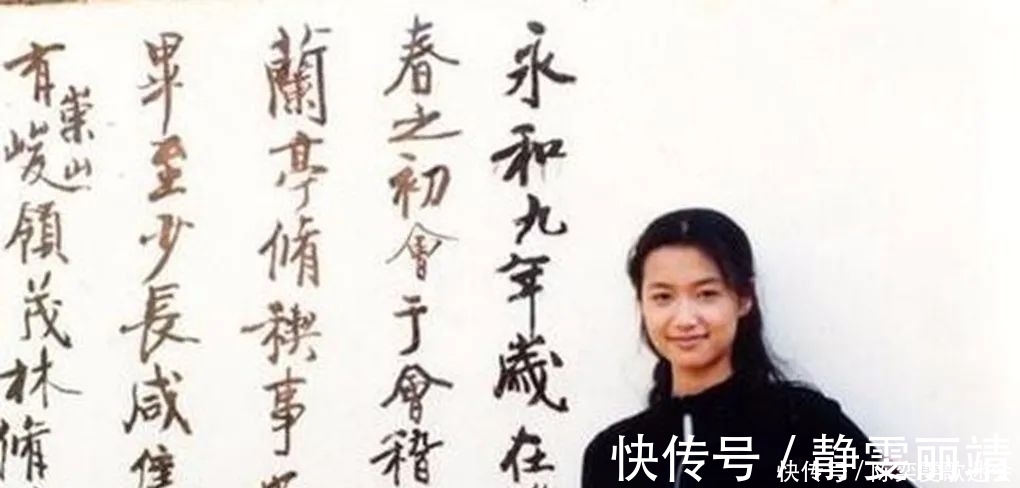 永和九年歲在
春之初會于會稽
蘭亭脩禊事
畢至少長咸
有崇山峻領茂林脩
快传号 / 静雯丽靖
快传号 /